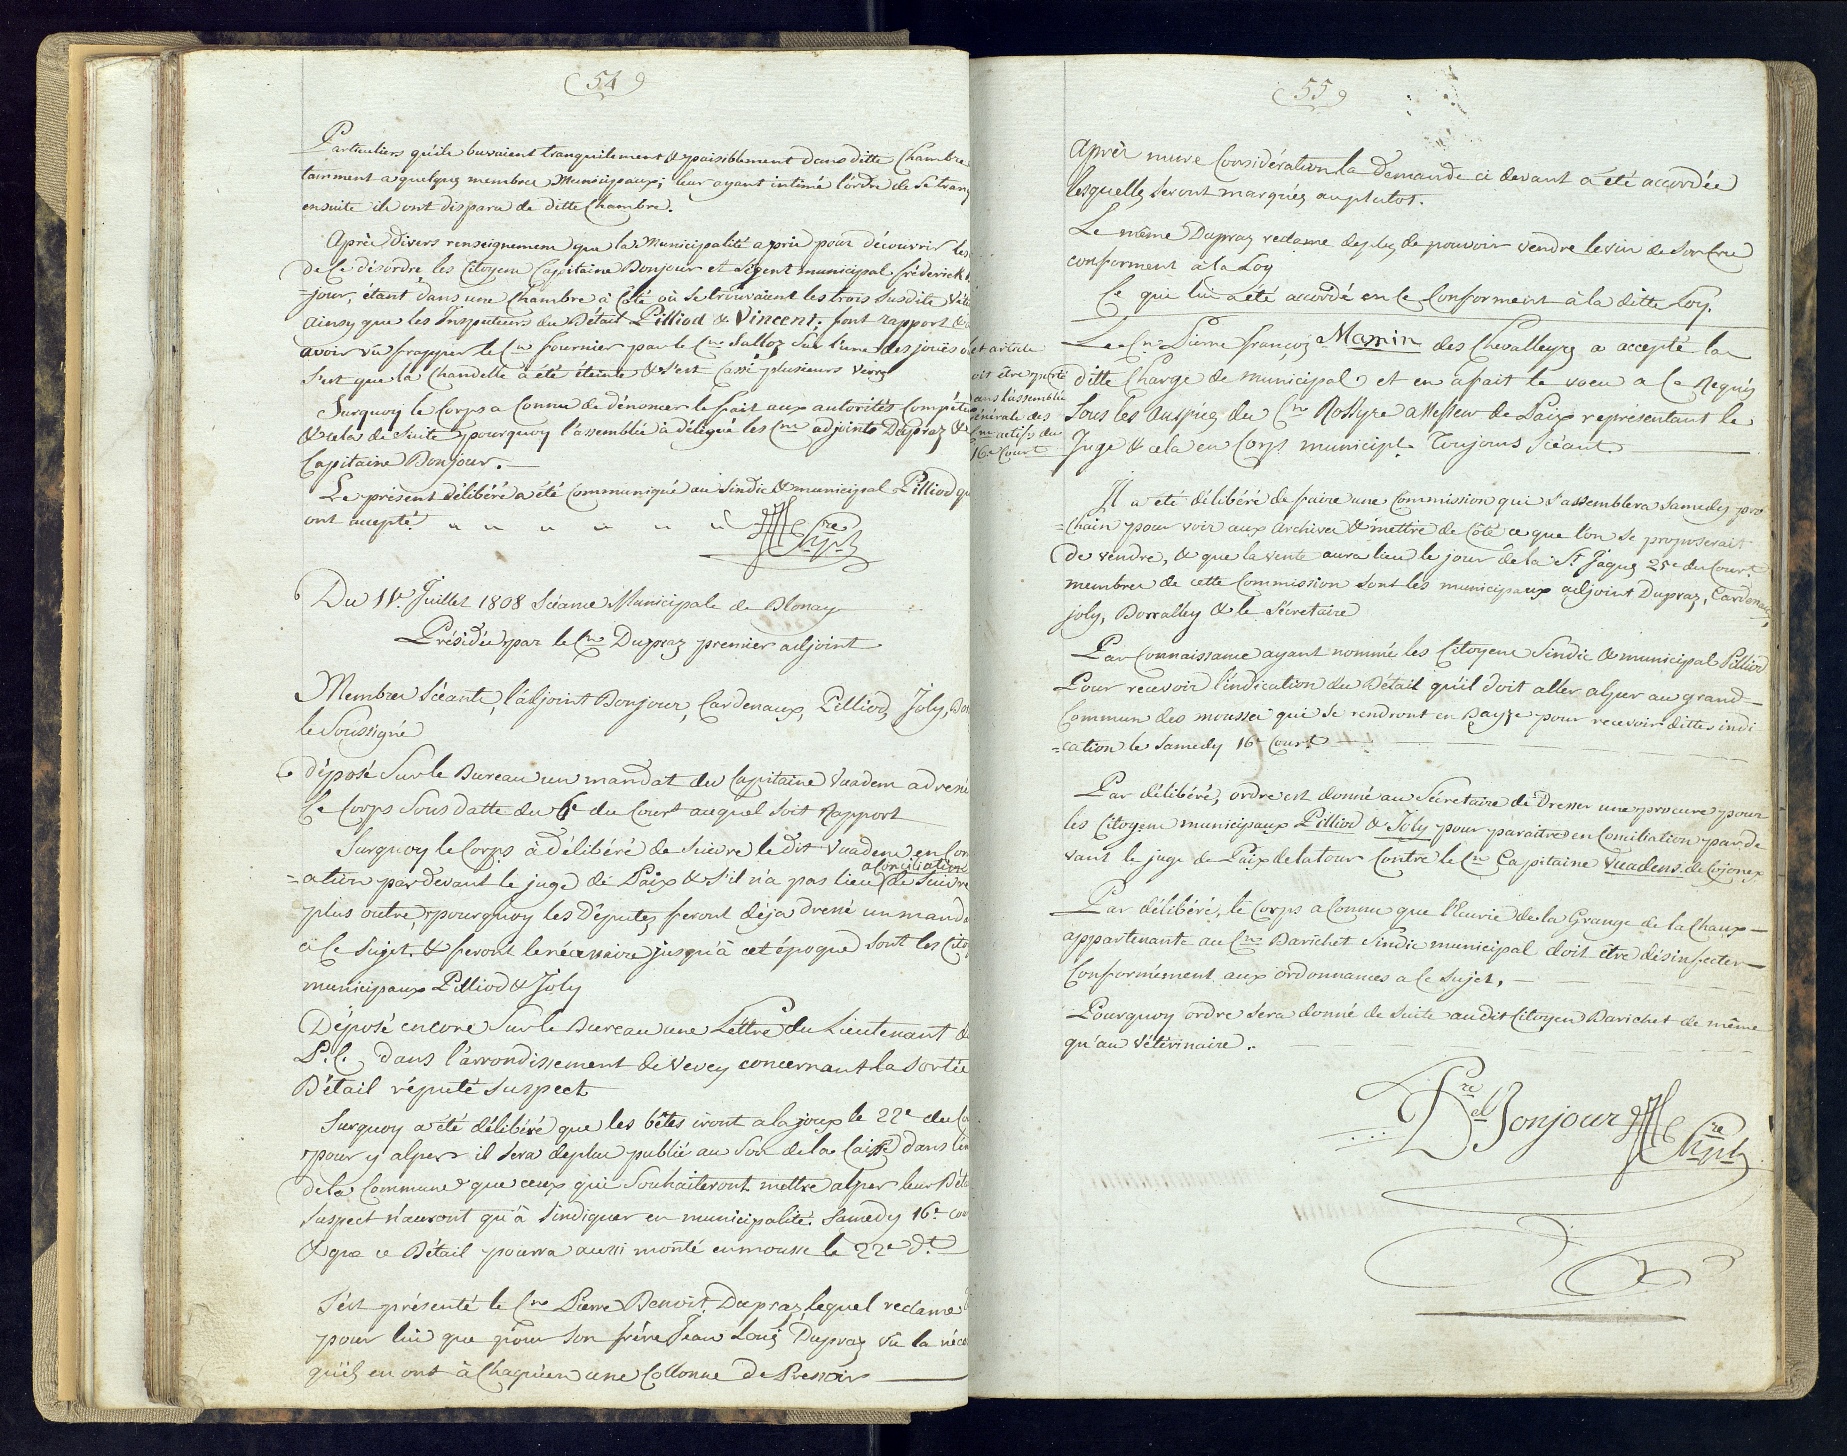 54
Particuliers qu'ils buvaient tranquilement & paisiblement dans ditte Chambre
tamment a quelques membres Municipaux; leur ayant intimé l'ordre de se tranq
ensuite ils ont disparu de ditte Chambre.
Après divers renseignemens que la Municipalité a pris pour découvrir les
de Ce désordre, les Citoyens Capitaine Bonjour et Agent municipal fréderick
=jour, étant dans une Chambre à Côté où Se trouvaient les trois Susdits
ainsy que les Inspecteurs du Bétail Pilliod & Vincent; font rapport &
avoir vu frapper le Cn fournier par le Cn Salloz Sur l'une des joües
S'est que la Chandelle a été éteinte & s'est Cassé plusieurs verres
Surquoy le Corps a Connu de dénoncer le fait aux autorités Compéte
& cela de Suite pourquoy l'assemblée à délégué les Cns adjoints Dupraz &
Capitaine Bonjour.
Le présent délibéré a été Communiqué au Sindic & municipal Pilliod qu
ont accepté
Sre
Du 11e. Juillet 1808 Séance Municipale de Blonay
Présidée par le Cn Dupraz premier adjoint
Membres Séants, l'adjoint Bonjour, Cardenaux, Pilliod, Joly, Bo
le Soussigné
déposé Sur le Bureau un mandat du Capitaine Vuadens adressé
Ce Corps Sous datte du 6e du Court auquel Soit Rapport
Surquoy le Corps à délibéré de Suivre le dit Vuadens en Con
a Conciliation
=ation par devant le juge de Paix & S'il n'a pas lieu de Suivre
plus outre, pourquoy les Députés feront déja dressé un manda
à Ce Sujet & feront le nécessaire jusqu'à cet époque Sont les Cito
municipaux Pilliod & Joly
Déposé encore Sur le Bureau une Lettre du Lieutenant d
P. C. dans l'arrondissement de Vevey concernant la Sortie
Bétail réputé Suspect
Surquoy a été délibéré que les bêtes iront a la joux le 22e du Co
pour y alper il Sera deplus publié au Son de la Caisse dans l'en
de la Commune que ceux qui Souhaiteront mettre alper leur Béta
Suspect n'auront qu'à S'indiquer en municipalité Samedy 16e cou
& que ce Bétail pourra aussi monté en mousse le 22e dt
S'est présenté le Cn Pierre Benoit Dupraz lequel reclame
pour lui que pour Son frère Jean Louis Dupraz vû la néce
qu'ils en ont à Chaquun une Collonne de Pressoir
55
après mure Considération la demande ci devant a été accordée
lesquelles Seront marquées auplutot.
Le même Dupraz reclame deplus de pouvoir vendre le vin de Son Cru
conforment à la Loy
Ce qui lui a été accordé en Se Conformant à la ditte Loy.
et article
oit être porté
ans l'assemblée
énérale des
Cns actifs du
16e Court
Le Cn Pierre françois Mamin des Chevalleyres a accepté la
ditte Charge de municipal et en a fait le voeu a Ce Requis
Sous les Auspices du Cn Rossyre assesseur de Paix représentant le
Juge & cela en Corps municipl. Toujours Séant
Il a été délibéré de faire une Commission qui s'assemblera Samedy pro
=chain pour voir aux archives & mettre de Côté ce que l'on Se proposerait
De vendre, & que la vente aura lieu le jour de la St Jaques 25e du Court
membres de cette Commission Sont les municipaux adjoint Dupraz, Cardenaux,
joly, Borralley & le Sécretaire
Par Connaissance ayant nommé les Citoyens Sindic & municipal Pilliod
Pour recevoir l'indication du Bétail qu'il doit aller alper au grand
Commun des mousses qui Se rendront en Bayse pour recevoir dittes indi
=cation le Samedy 16e Court
Par délibéré, ordre est donné au Sécretaire de Dresser une procure pour
les Citoyens municipaux Pilliod & Joly pour paraitre en Conciliation par de
vant le juge de Paix de la tour Contre le Cn Capitaine Vuadens de Cojonex
Par délibéré, le Corps a Connu que l'Eurie de la Grange de la Chaux
appartenante au Cn Barichet Sindic municipal doit être désinfecter
Conformément aux ordonnances a Ce Sujet.
Pourquoy ordre Sera donné de Suite audit Citoyen Barichet de même
qu'au Vétérinaire.
Bonjour
Sre